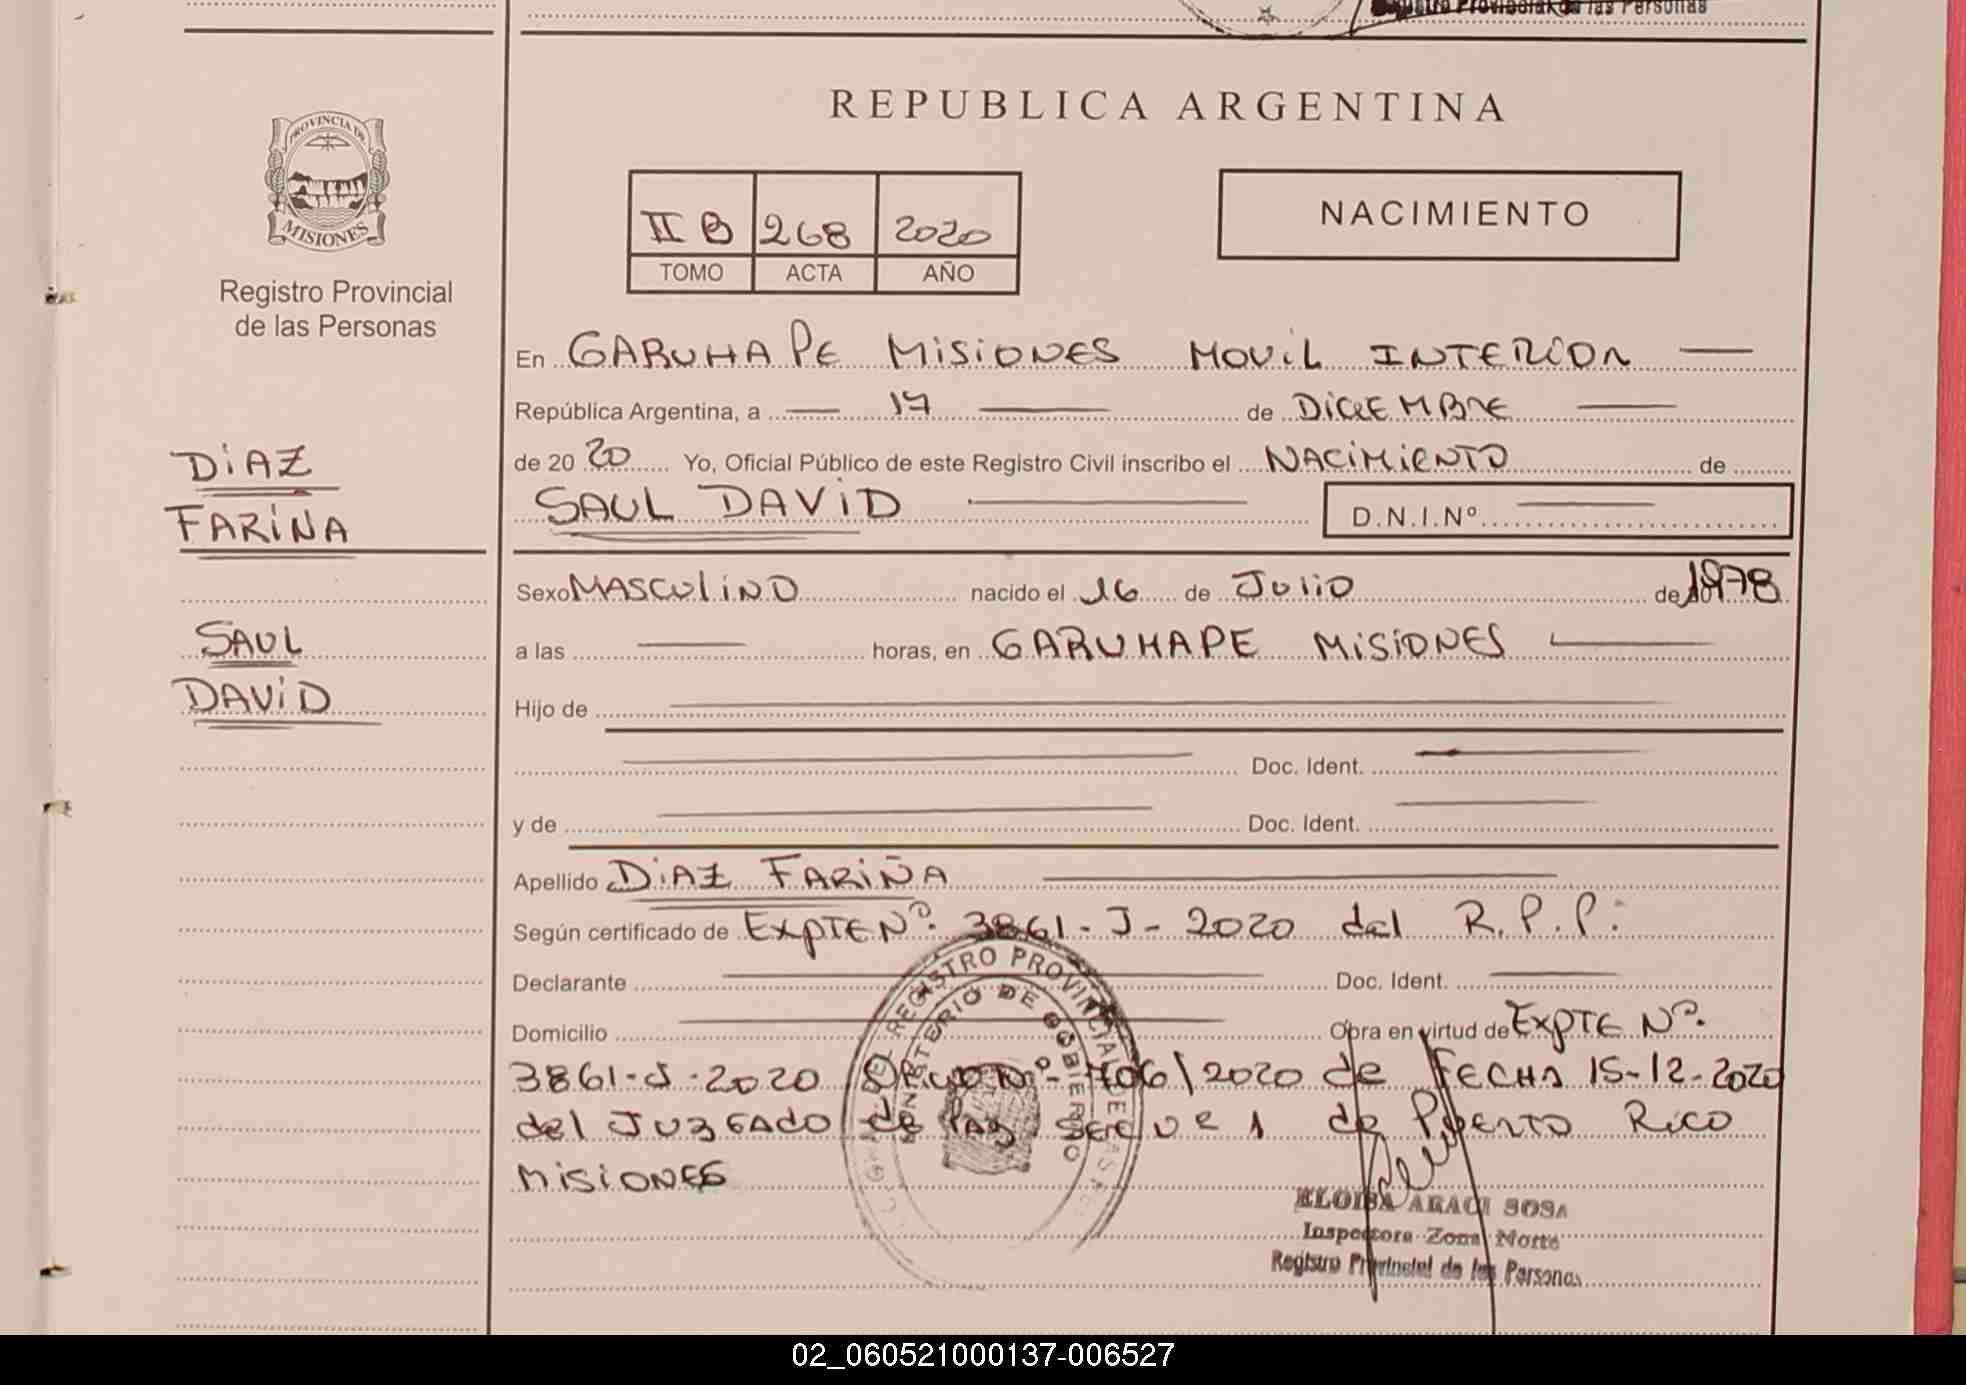 Registro Provincial de las Personas
PROVINCIA DE
MISIONES
Registro Provincial
de las Personas
DIAZ
FARIÑA
SAUL
DAVID
REPUBLICA ARGENTINA
II B 268 2020
TOMO ACTA AÑO
NACIMIENTO
En GARUHAPE MISIONES MOVIL INTERIOR
República Argentina, a 17 de DICIEMBRE
de 20 20 Yo, Oficial Público de este Registro Civil inscribo el NACIMIENTO de
SAUL DAVID D.N.I.Nº
Sexo MASCULINO nacido el 16 de JULIO de 1978
a las horas, en GARUHAPE MISIONES
Hijo de
Doc. Ident.
y de Doc. Ident.
Apellido DIAZ FARIÑA
Según certificado de EXPTE Nº. 3861-J-2020 del R.P.P.
Declarante Doc. Ident.
Domicilio Obra en virtud de EXPTE Nº.
3861-J-2020 OFICIO Nº 706/2020 de FECHA 15-12-2020
del JUZGADO de PAZ de PUERTO RICO
MISIONES
REGISTRO PROVINCIAL DE LAS
MINISTERIO DE GOBIERNO
ELOISA ARACI SOSA
Inspectora Zona Norte
Registro Provincial de las Personas
02_060521000137-006527